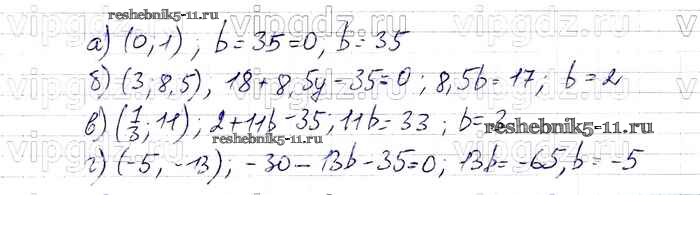 reshebnik5-11.ru
а) (0, 1) ; b = 35 = 0, b = 35
б) (3; 8,5), 18 + 8,5y - 35 = 0 ; 8,5b = 17; b = 2
в) (1/3; 11); 2 + 11b - 35; 11b = 33 ; b = 3
reshebnik5-11.ru
reshebnik5-11.ru
г) (-5, -13); -30 - 13b - 35 = 0; 13b = -65, b = -5